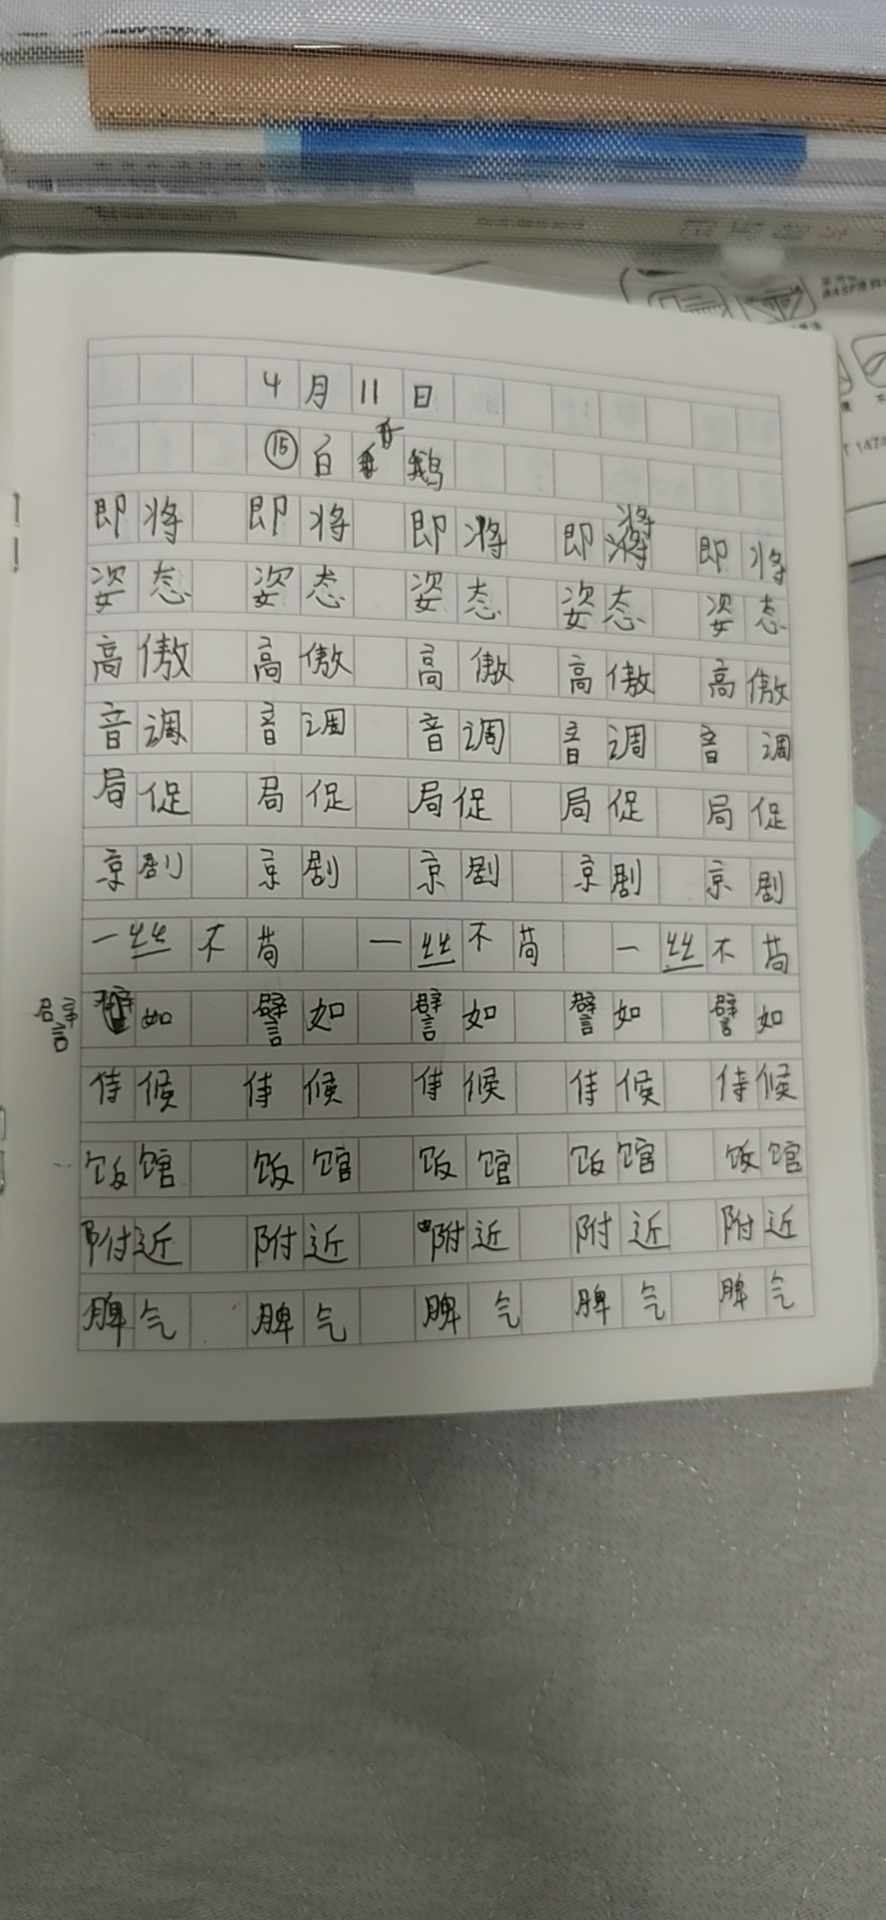 4月11日
⑮白鹅
即将 即将 即将 即将 即将
姿态 姿态 姿态 姿态 姿态
高傲 高傲 高傲 高傲 高傲
音调 音调 音调 音调 音调
局促 局促 局促 局促 局促
京剧 京剧 京剧 京剧 京剧
一丝不苟 一丝不苟 一丝不苟
譬如 譬如 譬如 譬如 譬如
侍候 侍候 侍候 侍候 侍候
饭馆 饭馆 饭馆 饭馆 饭馆
附近 附近 附近 附近 附近
脾气 脾气 脾气 脾气 脾气